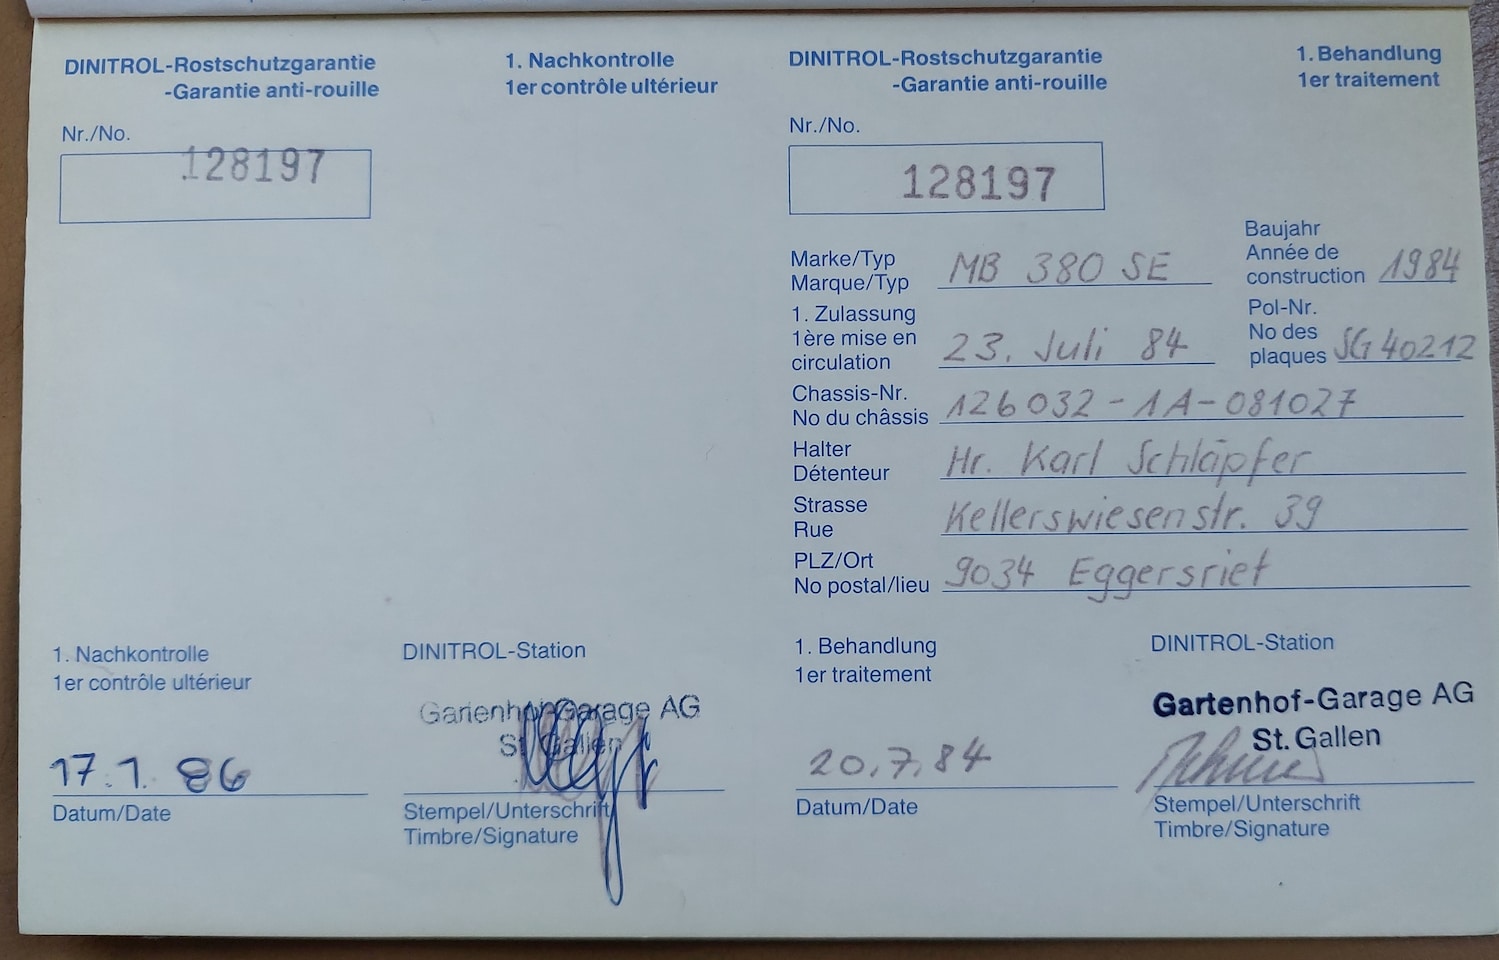 DINITROL-Rostschutzgarantie
-Garantie anti-rouille
1. Nachkontrolle
1er contrôle ultérieur
Nr./No.
128197
1. Nachkontrolle
1er contrôle ultérieur
DINITROL-Station
Gartenhof-Garage AG
St. Gallen
17.1.86
Datum/Date
Stempel/Unterschrift
Timbre/Signature
DINITROL-Rostschutzgarantie
-Garantie anti-rouille
1. Behandlung
1er traitement
Nr./No.
128197
Marke/Typ
Marque/Typ
MB 380 SE
Baujahr
Année de
construction
1984
1. Zulassung
1ère mise en
circulation
23. Juli 84
Pol-Nr.
No des
plaques
SG 40212
Chassis-Nr.
No du châssis
126032-1A-081027
Halter
Détenteur
Hr. Karl Schläpfer
Strasse
Rue
Kellerswiesenstr. 39
PLZ/Ort
No postal/lieu
9034 Eggersriet
1. Behandlung
1er traitement
DINITROL-Station
Gartenhof-Garage AG
St. Gallen
20.7.84
Datum/Date
Stempel/Unterschrift
Timbre/Signature